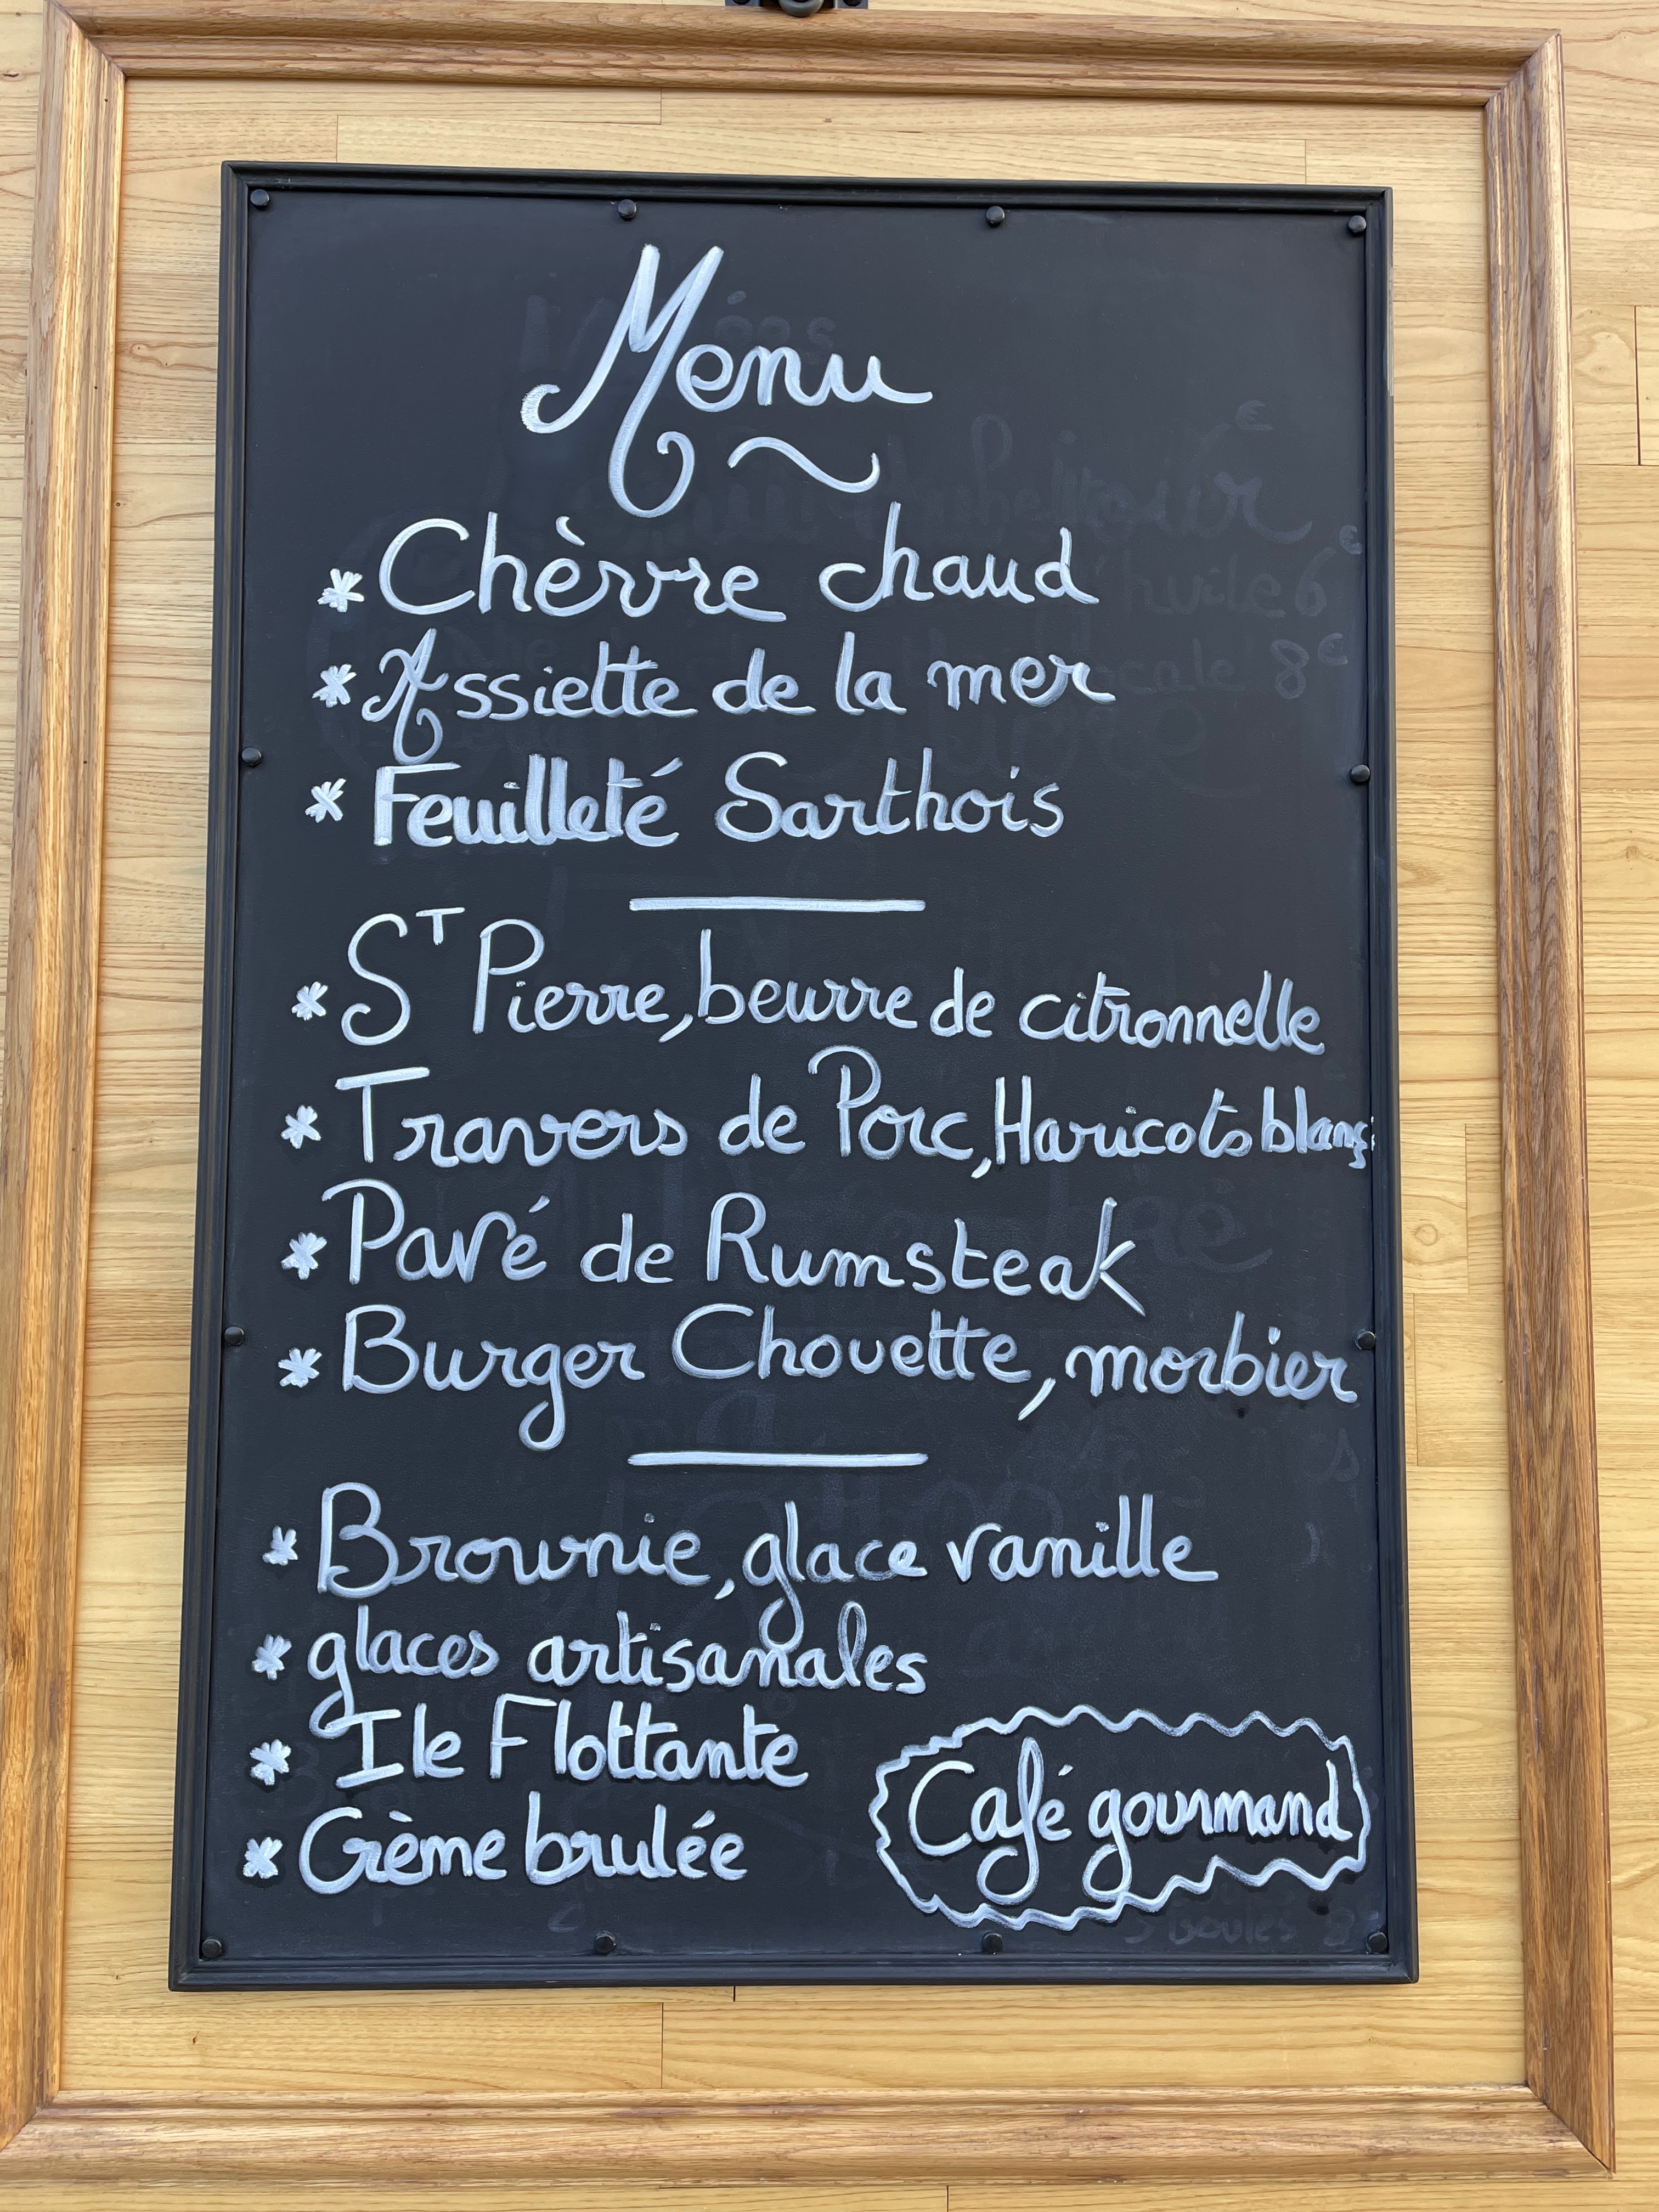 Menu
* Chèvre chaud
* Assiette de la mer
* Feuilleté Sarthois
* St Pierre, beurre de citronnelle
* Travers de Porc, Haricots blancs
* Pavé de Rumsteak
* Burger Chouette, morbier
* Brownie, glace vanille
* glaces artisanales
* Ile Flottante
* Crème brulée
Café gourmand